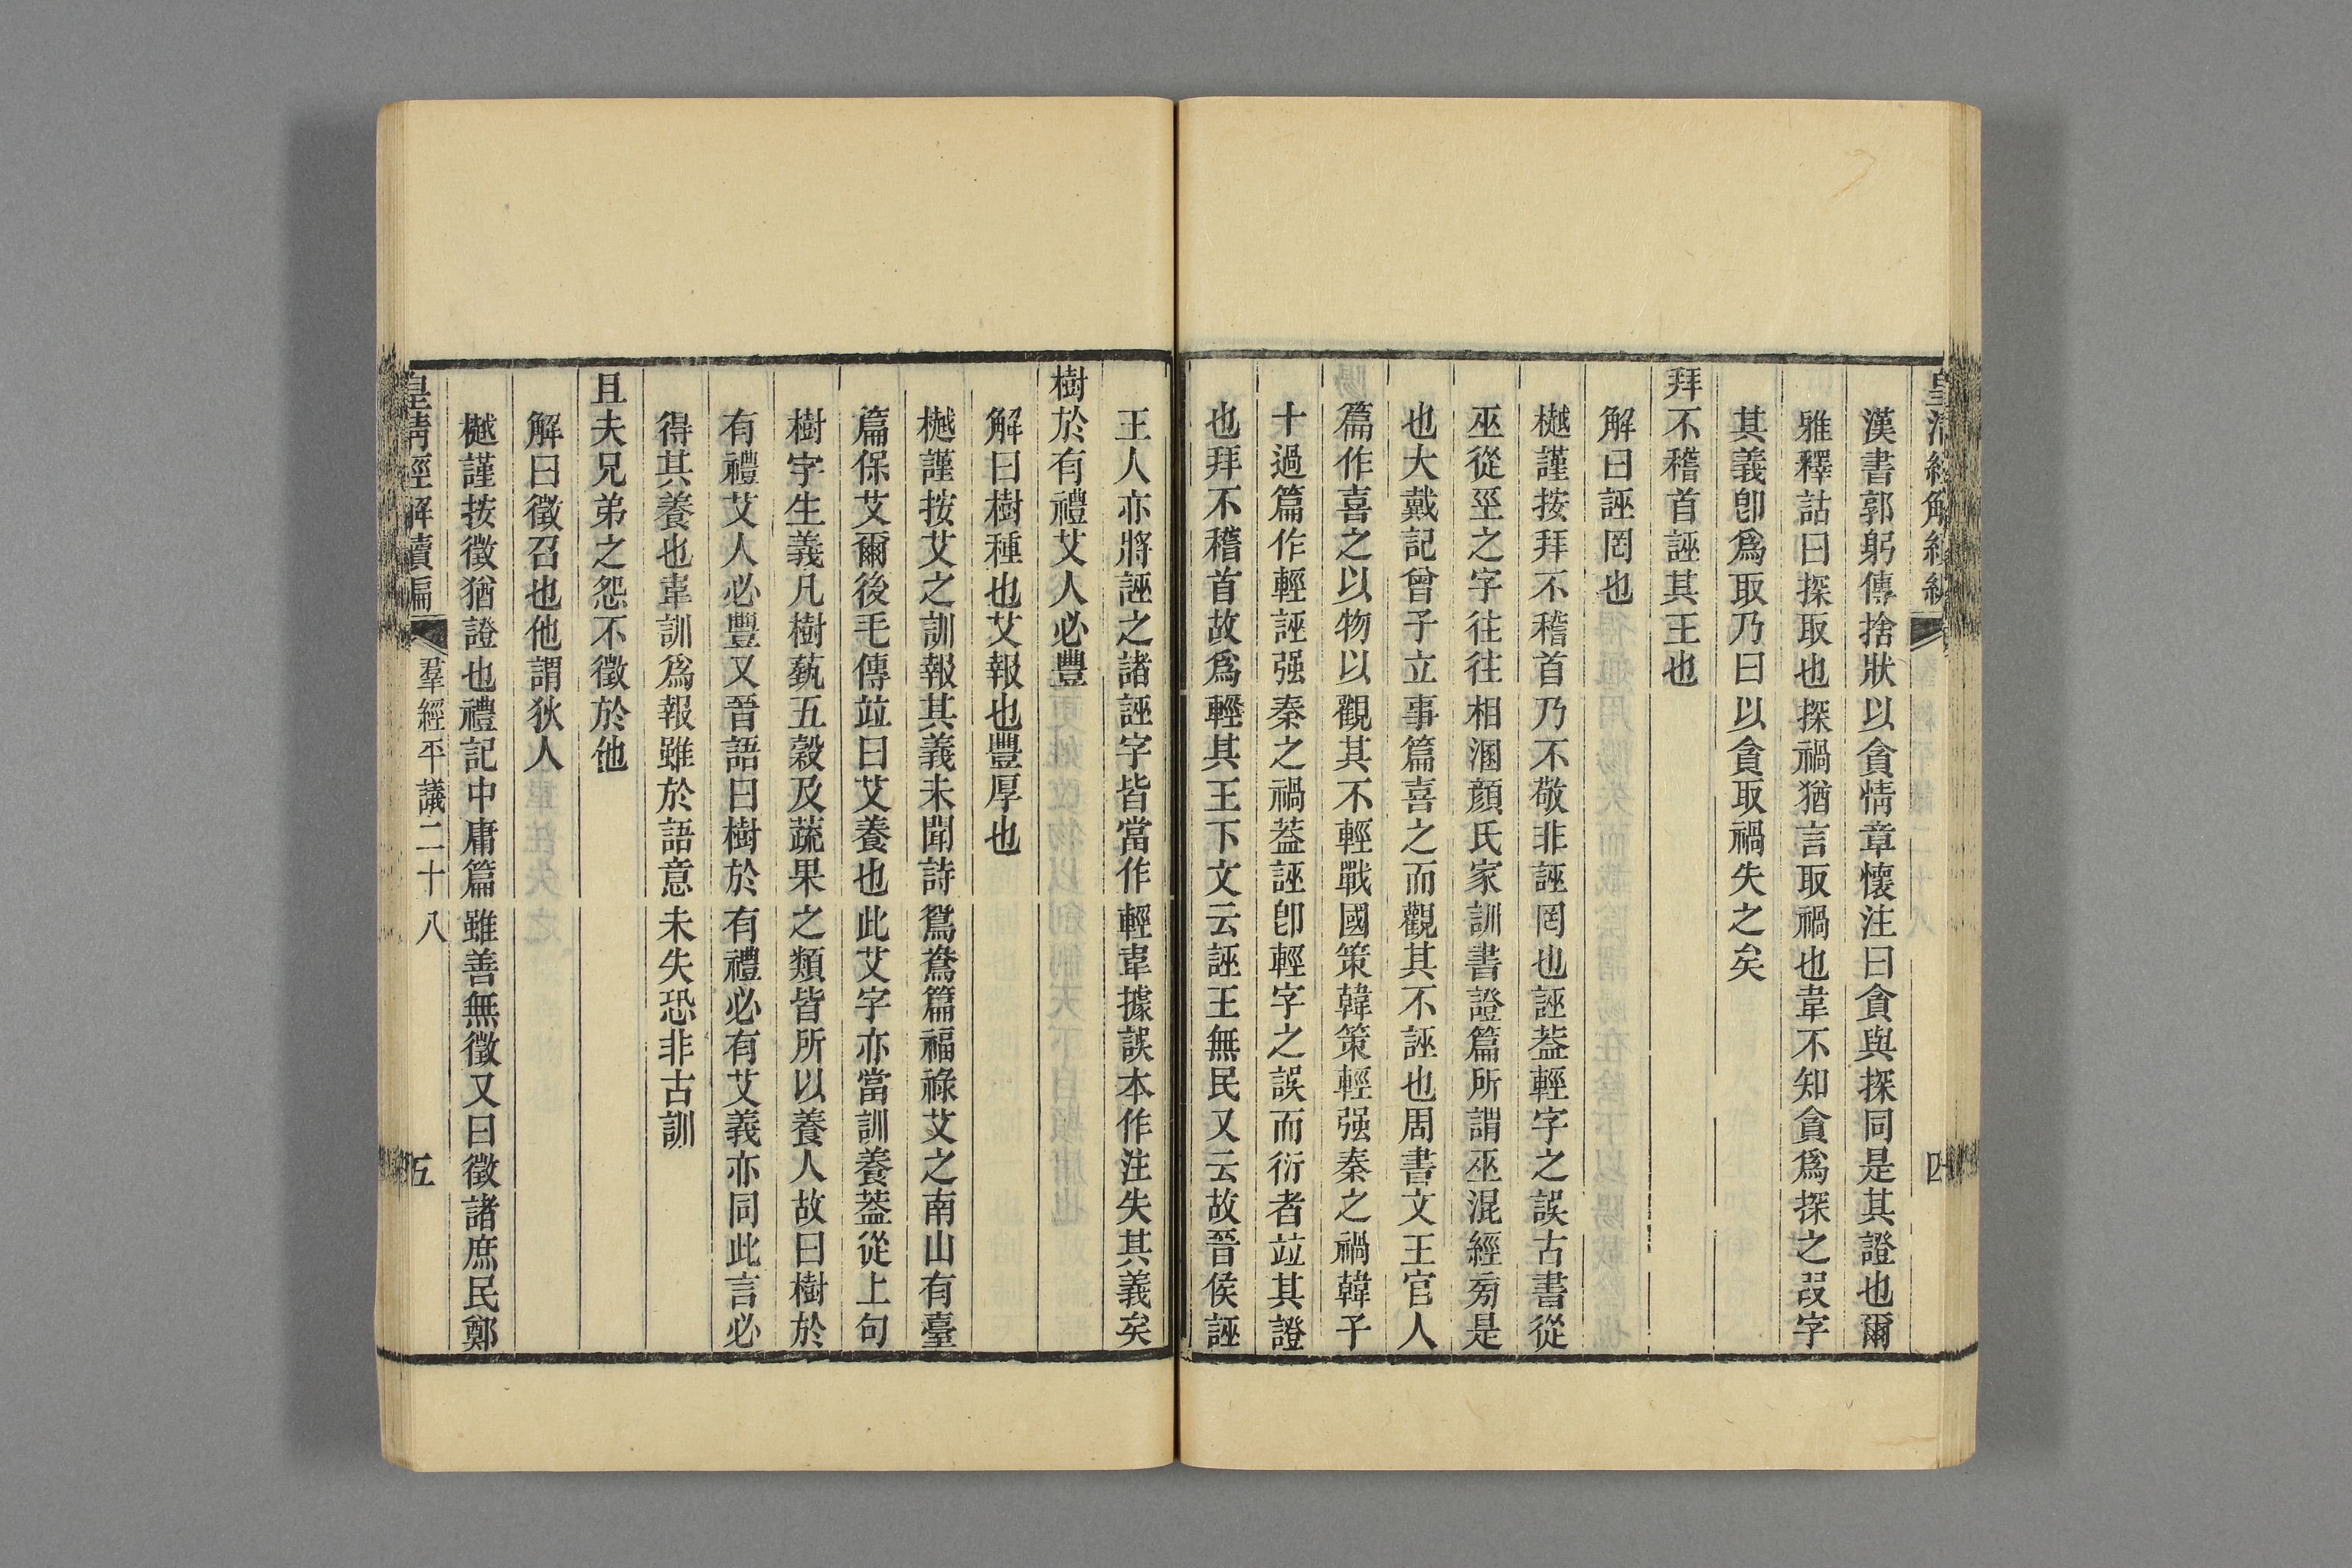 漢書郭躬傳捨狀以貪情章懷注曰貪與探同是其證也爾
雅釋詁曰探取也探禍猶言取禍也韋不知貪爲探之叚字
其義卽爲取乃曰以貪取禍失之矣
拜不稽首誣其王也
解曰誣罔也
樾謹按拜不稽首乃不敬非誣罔也誣葢輕字之誤古書從
巫從巠之字往往相溷顏氏家訓書證篇所謂巫混經旁是
也大戴記曾子立事篇喜之而觀其不誣也周書文王官人
篇作喜之以物以觀其不輕戰國策韓策輕强秦之禍韓子
十過篇作輕誣强秦之禍葢誣卽輕字之誤而衍者竝其證
也拜不稽首故爲輕其王下文云誣王無民又云故晉侯誣
王人亦將誣之諸誣字皆當作輕韋據誤本作注失其義矣
樹於有禮艾人必豐
解曰樹種也艾報也豐厚也
樾謹按艾之訓報其義未聞詩鴛鴦篇福祿艾之南山有臺
篇保艾爾後毛傳竝曰艾養也此艾字亦當訓養葢從上句
樹字生義凡樹蓺五穀及蔬果之類皆所以養人故曰樹於
有禮艾人必豐又晉語曰樹於有禮必有艾義亦同此言必
得其養也韋訓爲報雖於語意未失恐非古訓
且夫兄弟之怨不徵於他
解曰徵召也他謂狄人
樾謹按徵猶證也禮記中庸篇雖善無徵又曰徵諸庶民鄭
皇清經解續編 羣經平議二十八 五